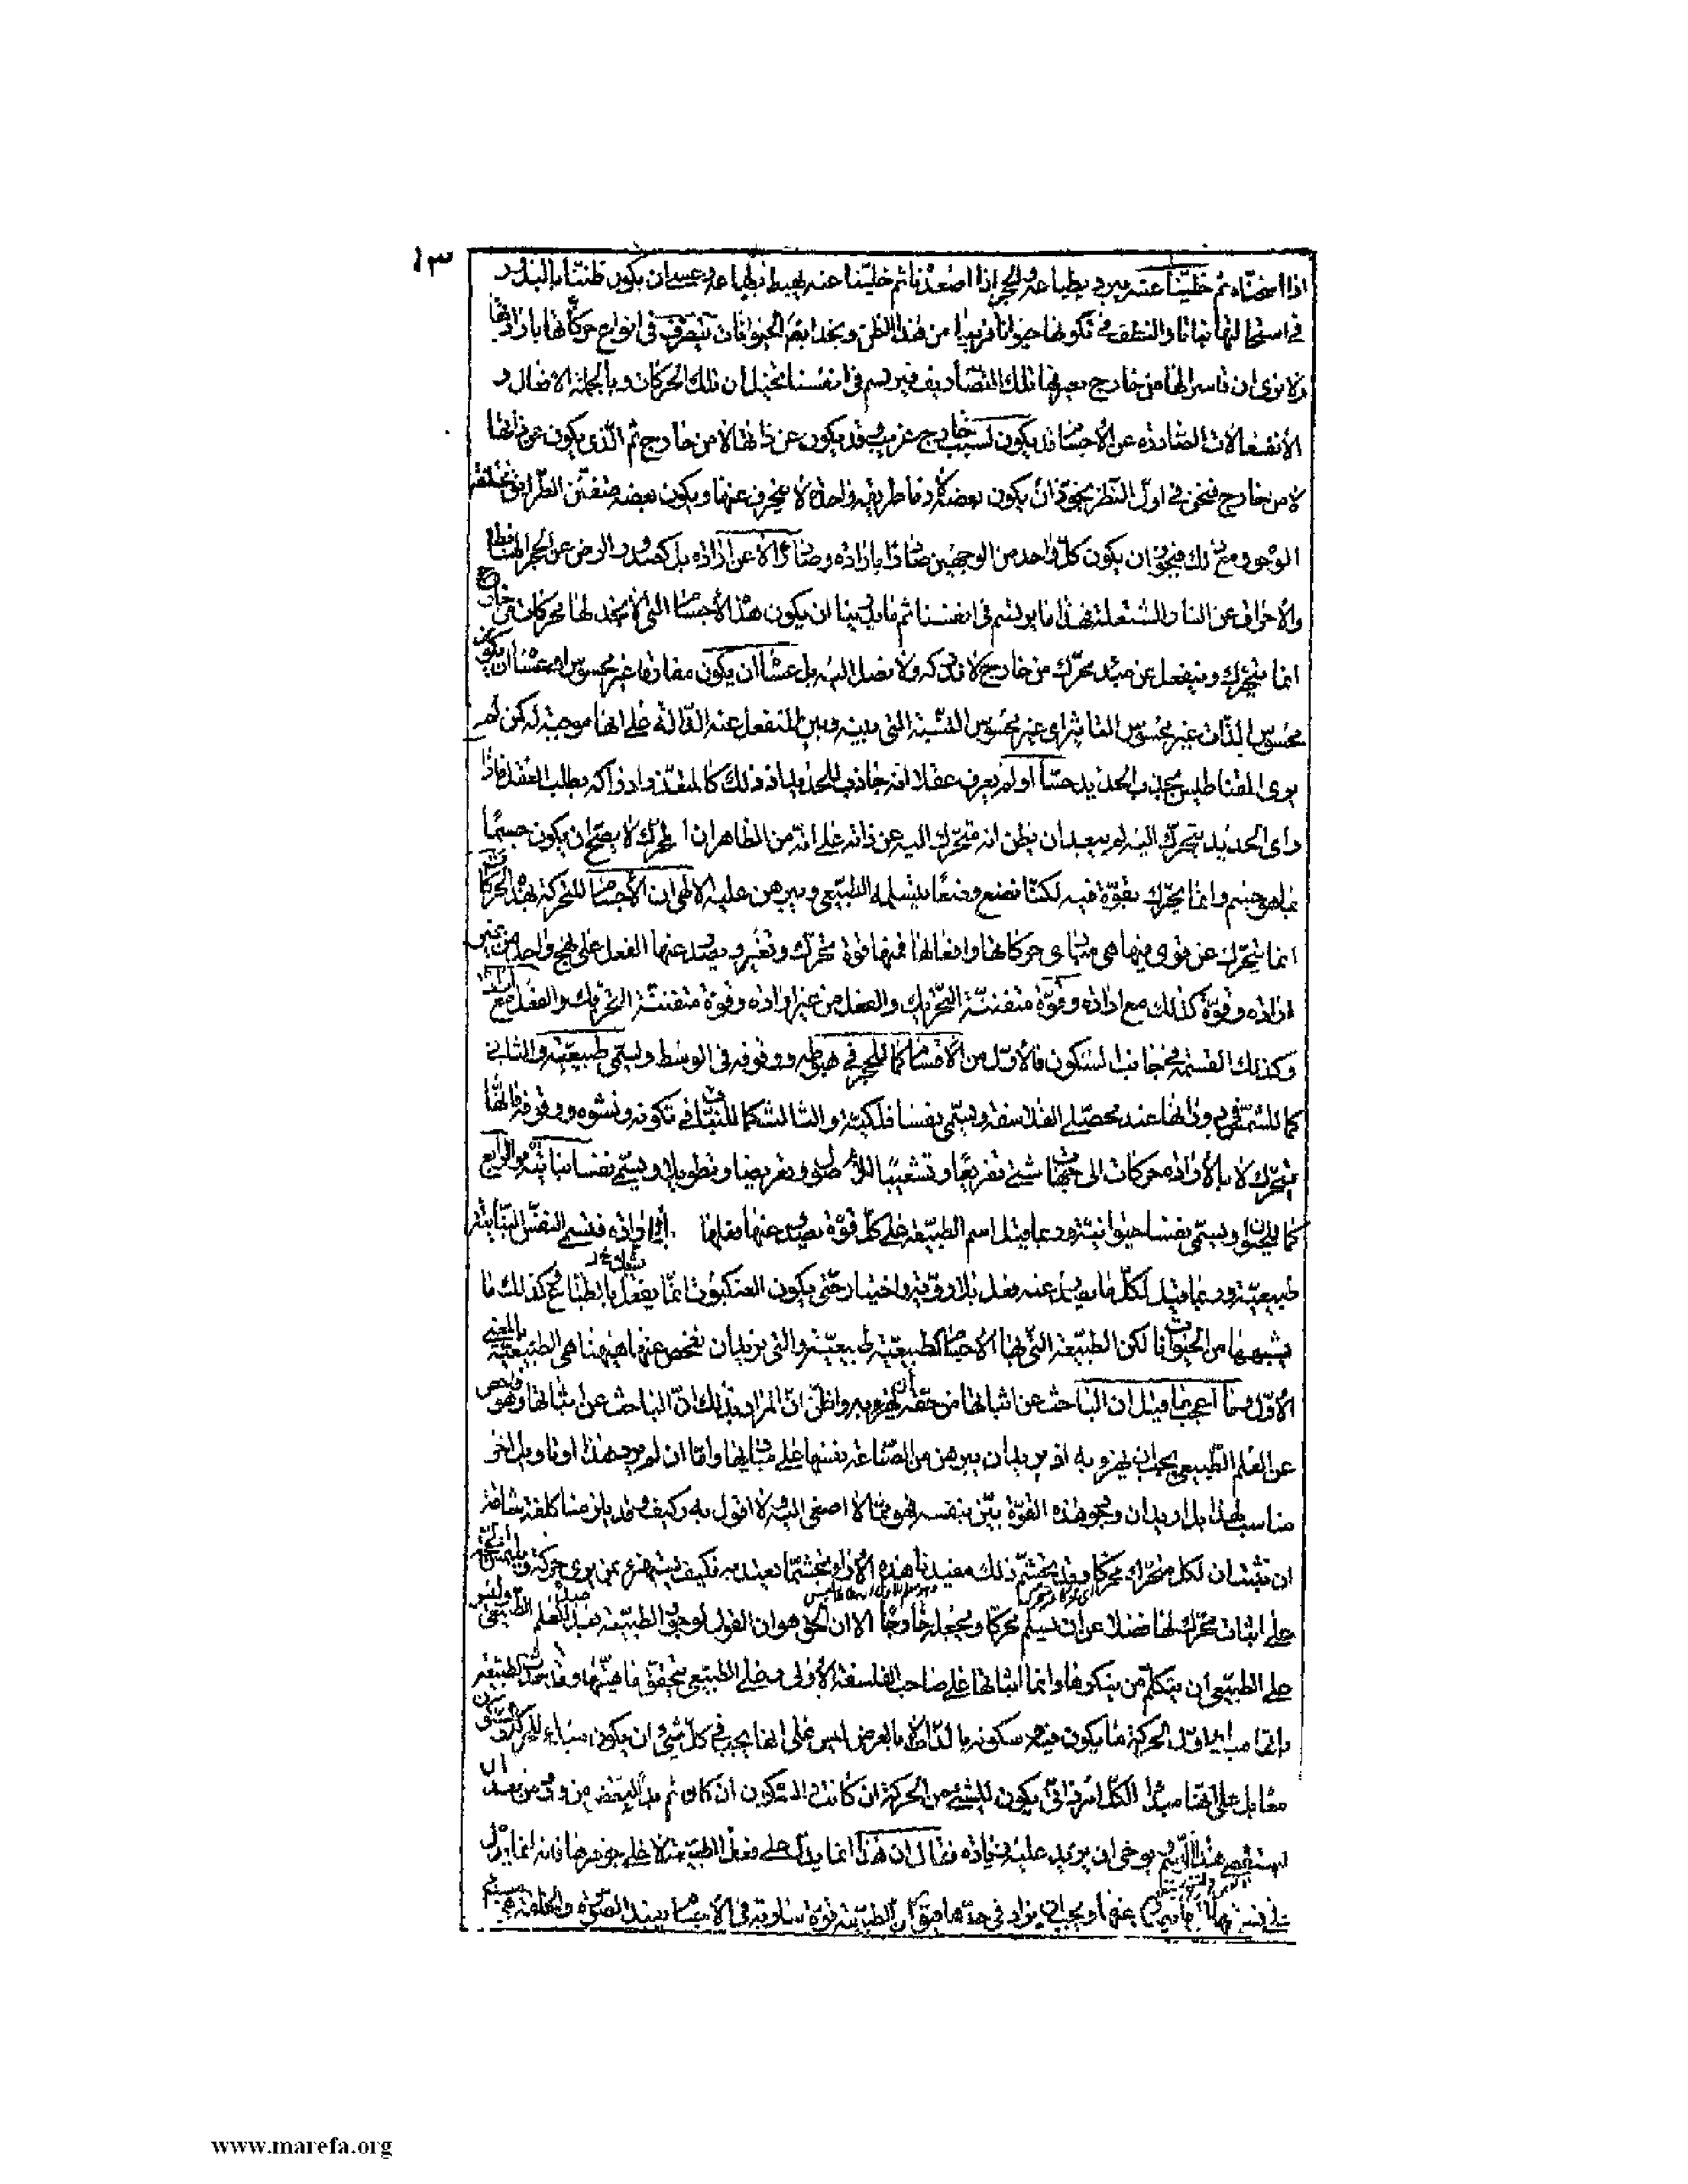 ١٣
اذا اسخناه ثم خلينا عنه يبرد بطباعه والحجر اذا اصعدناه ثم خلينا عنه يهبط بطباعه وعسى ان يكون ظننا بالبذور
في استحالتها نباتا والنطف في تكونها حيوانا قريبا من هذا الظن ونجد ايضا الحيوانات تتصرف في انواع حركاتها بارادتها
ولا نرى ان قاسرا لها من خارج يصرفها تلك التصاريف فيرتسم في انفسنا تخيل ان تلك الحركات وبالجملة الافعال و
الانفعالات الصادرة عن الاجسام قد يكون لسبب خارج غريب وقد يكون عن ذاتها لا من خارج ثم الذي يكون عن ذاتها
لا من خارج فنحن في اول النظر نجوز ان يكون بعضه لازما طريقة واحدة لا ينحرف عنها ويكون بعضه متفنن الطرائق مختلف
الوجوه ومع ذلك فيجوز ان يكون كل واحد من الوجهين صادرا بارادة وصادرا لا عن ارادة بل كصدور الرض عن الحجر الهابط
والاحراق عن النار المشتعلة فهذا ما يرتسم في انفسنا ثم ما يدرينا ان يكون هذه الاجسام التي لا نجد لها محركات من خارج
انما يتحرك وينفعل عن مبدء محرك من خارج لا ندركه ولا نصل اليه بل عساه ان يكون مفارقا غير محسوس او عساه ان يكون
محسوس الذات غير محسوس التاثير اي غير محسوس النسبة التي بينه وبين المنفعل عنه الدالة على انها موجبة له كمن لم
يرى المقناطيس يجذب الحديد حسا او لم يعرف عقلا انه جاذب للحديد اذ ذلك كالمتعذر ادراكه بطلب العقل فاذا
راى الحديد يتحرك اليه لم يبعد ان يظن انه متحرك اليه عن ذاته على انه من الظاهر ان المحرك لا يصح ان يكون جسما
بما هو جسم وانما يحرك بقوة فيه لكنا نضع وضعا يتسلمه الطبيعي ويبرهن عليه الالهي ان الاجسام المتحركة بهذه الحركات
انما تتحرك عن قوى فيها هي مبادي حركاتها وافعالها فمنها قوة تحرك وتغير ويصدر عنها الفعل على نهج واحد من غير
ارادة وقوة كذلك مع ارادة وقوة متفننة التحريك والفعل من غير ارادة وقوة متفننة التحريك والفعل مع ارادة
وكذلك القسمة في جانب السكون فالاول من الاقسام كما للحجر في هبوطه ووقوفه في الوسط ويسمى طبيعة والثاني
كما للشمس في دورانها عند محصلي الفلاسفة ويسمى نفسا فلكية والثالث كما للنبات في تكونه ونشوه ووقوفه فانها
تتحرك لا بالارادة حركات الى جهات شتى تفريعا وتشعيبا للاصول وتعريضا وتطويلا ويسمى نفسا نباتية والرابع
كما للحيوان ويسمى نفسا حيوانية وربما قيل اسم الطبيعة على كل قوة يصدر عنها فعلها بلا ارادة فتسمى النفس النباتية
طبيعة وربما قيل لكل ما يصدر عنه فعل بلا روية واختيار حتى يكون العنكبوت انما يفعل بالطباع كذلك ما
يشبهها من الحيوانات لكن الطبيعة التي بها الاجسام الطبيعية طبيعية والتي نريد ان نفحص عنها هيهنا هي الطبيعة بالمعنى
الاول وما اعجب ما قيل ان الباحث عن اثباتها من حقه ان يهزو به واظن ان المراد بذلك ان الباحث عن اثباتها وهو فاحص
عن العلم الطبيعي يجب ان يهزو به اذ يريد ان يبرهن من الصناعة نفسها على مباديها واما ان لم يرد هذا او تاويل اخر
مناسب لهذا بل اريد ان وجود هذه القوة بين بنفسه فهو مما لا اصغي اليه ولا اقول به وكيف وقد يلزمنا كلفة شاقة
ان نثبت ان لكل متحرك محركا وقد تجشم ذلك مفيدنا هذه الاراء تجشما يعتد به فكيف يستهزء بمن يرى حركة ويلتمس الحجة
على اثبات محرك لها فضلا عن ان يسلم محركا ويجعله خارجا الا ان الحق هو ان القول بوجود الطبيعة مبدا للعلم الطبيعي وليس
على الطبيعي ان يتكلم من ينكرها وانما اثباتها على صاحب الفلسفة الاولى وعلى الطبيعي تحقق ماهيتها وقد حدت الطبيعة
بانها مبدا اول لحركة ما يكون فيه وسكونه بالذات لا بالعرض ليس على انها يجب في كل شيء ان يكون مبداء للحركة والسكون
معا بل على انها مبدا لكل امر ذاتي يكون للشيء من الحركة ان كانت والسكون ان كان ثم بدا لبعض من ورد من بعد ان
يستقصر هذا الرسم وتوخى ان يزيد عليه زيادة فقال ان هذا انما يدل على فعل الطبيعة لا على جوهرها فانه انما يدل
على نسبتها الى ما يصدر عنها ويجب ان يزاد في حدها فيقال ان الطبيعة قوة سارية في الاجسام تفيد الصور والخلق هي
www.marefa.org